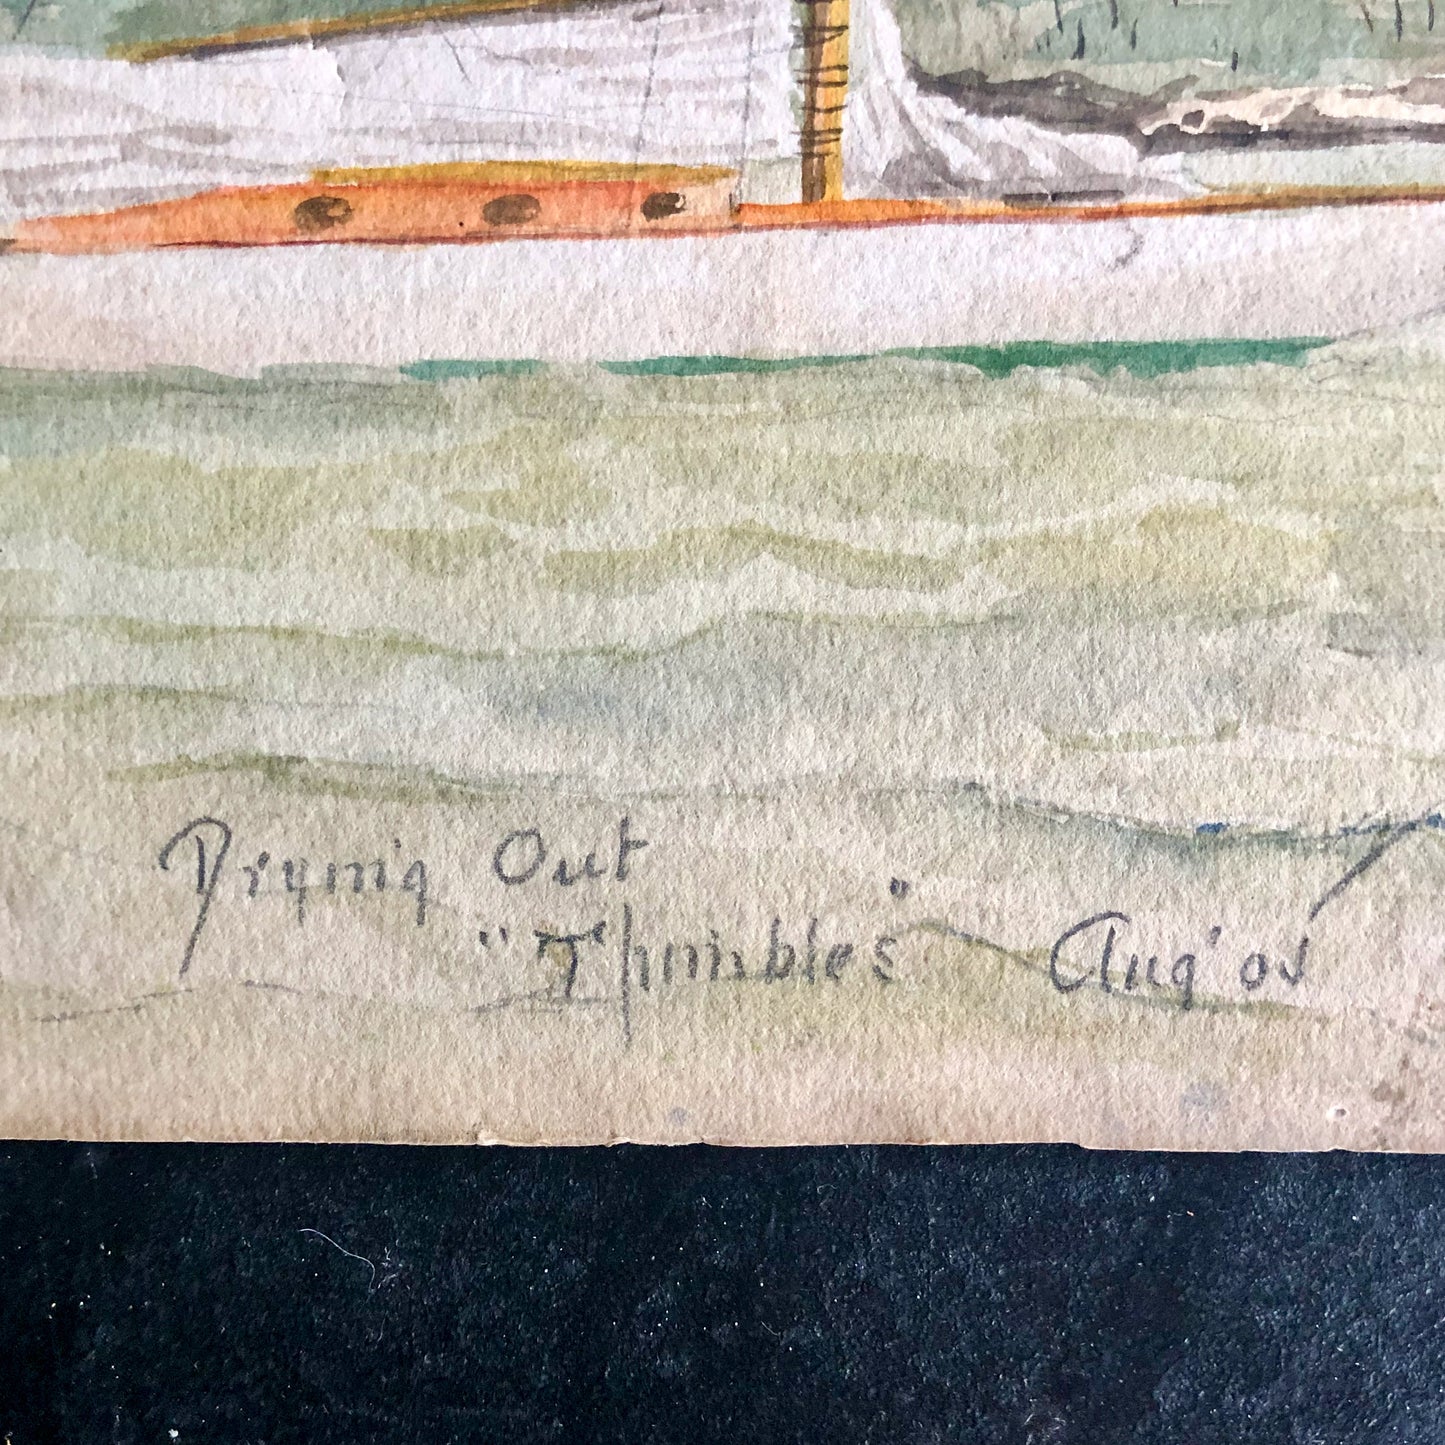 Drying Out
"Thimbles" Aug '05